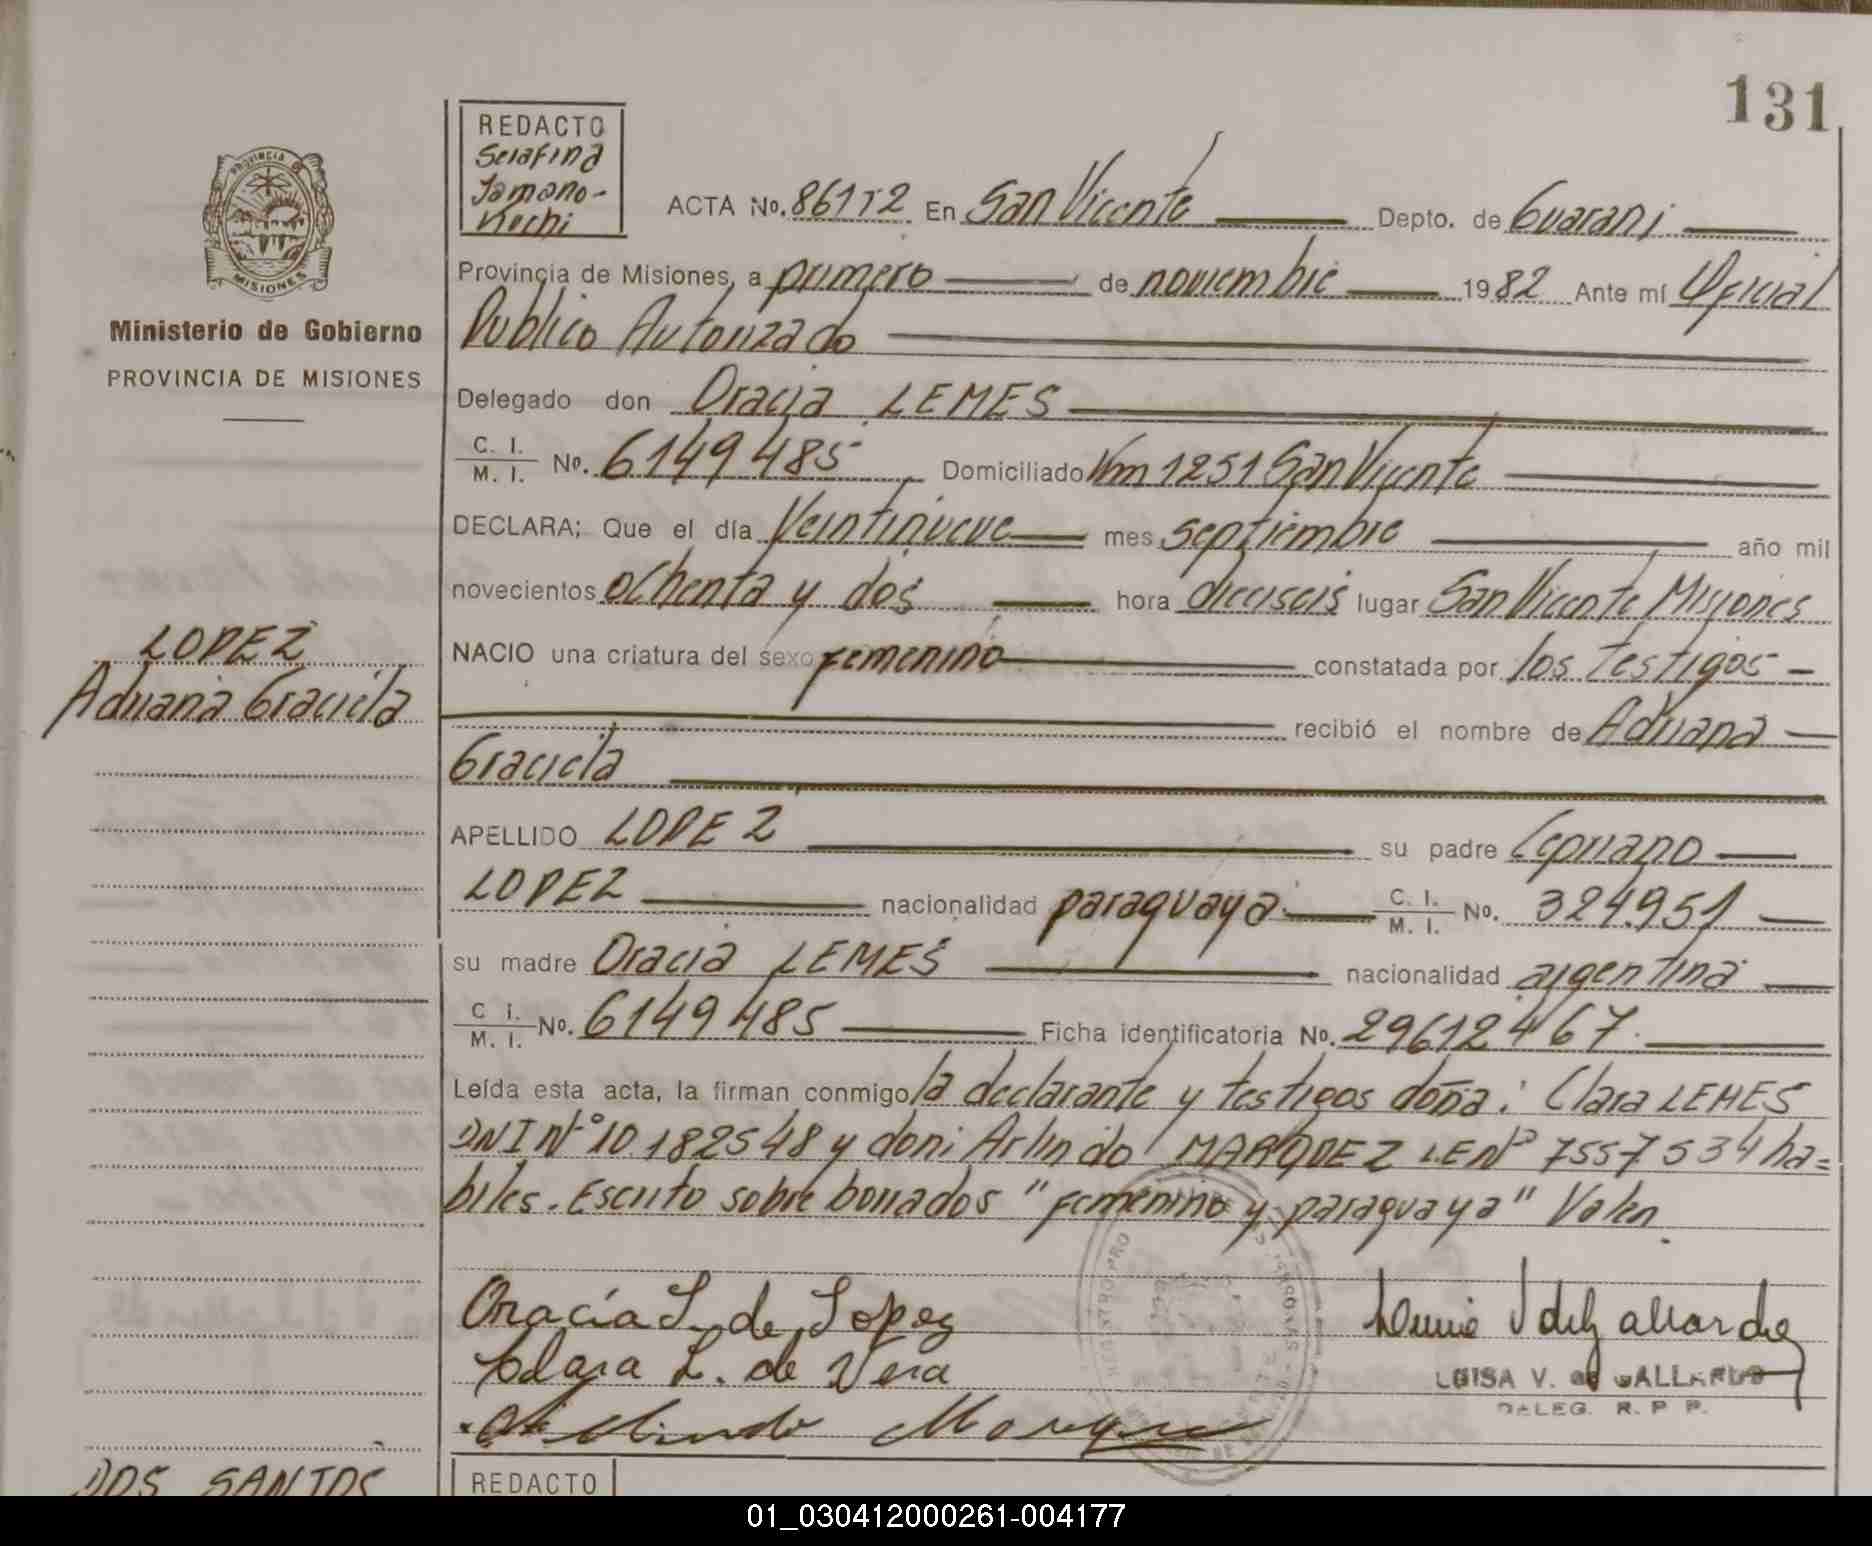 131
REDACTO
Serafina
Jamano-
Kechi
PROVINCIA DE
MISIONES
Ministerio de Gobierno
PROVINCIA DE MISIONES
ACTA No. 86112 En San Vicente Depto. de Guarani
Provincia de Misiones, a primero de noviembre 1982 Ante mí Oficial
Publico Autorizado
Delegado don Oracia LEMES
C. I. / M. I. No. 6149485 Domiciliado Km 1251 San Vicente
DECLARA; Que el día Veintinueve mes septiembre año mil
novecientos ochenta y dos hora dieciseis lugar San Vicente Misiones
LOPEZ
Adriana Graciela
NACIO una criatura del sexo femenino constatada por los testigos -
recibió el nombre de Adriana
Graciela
APELLIDO LOPEZ su padre Cipriano
LOPEZ nacionalidad paraguaya C. I. / M. I. No. 324.951
su madre Oracia LEMES nacionalidad argentina
C I. / M. I. No. 6149485 Ficha identificatoria No. 29612467.
Leída esta acta, la firman conmigo la declarante y testigos doña: Clara LEMES
DNI Nº 10.182548 y don: Arlindo MARQUEZ LE Nº 7557534 ha=
biles. Escrito sobre borrados "femenino y paraguaya" Valen.
Oracía L. de Lopez
Clara L. de Vera
LUISA V. de GALLARDO
DELEG. R. P. P.
DOS SANTOS
REDACTO
01_030412000261-004177